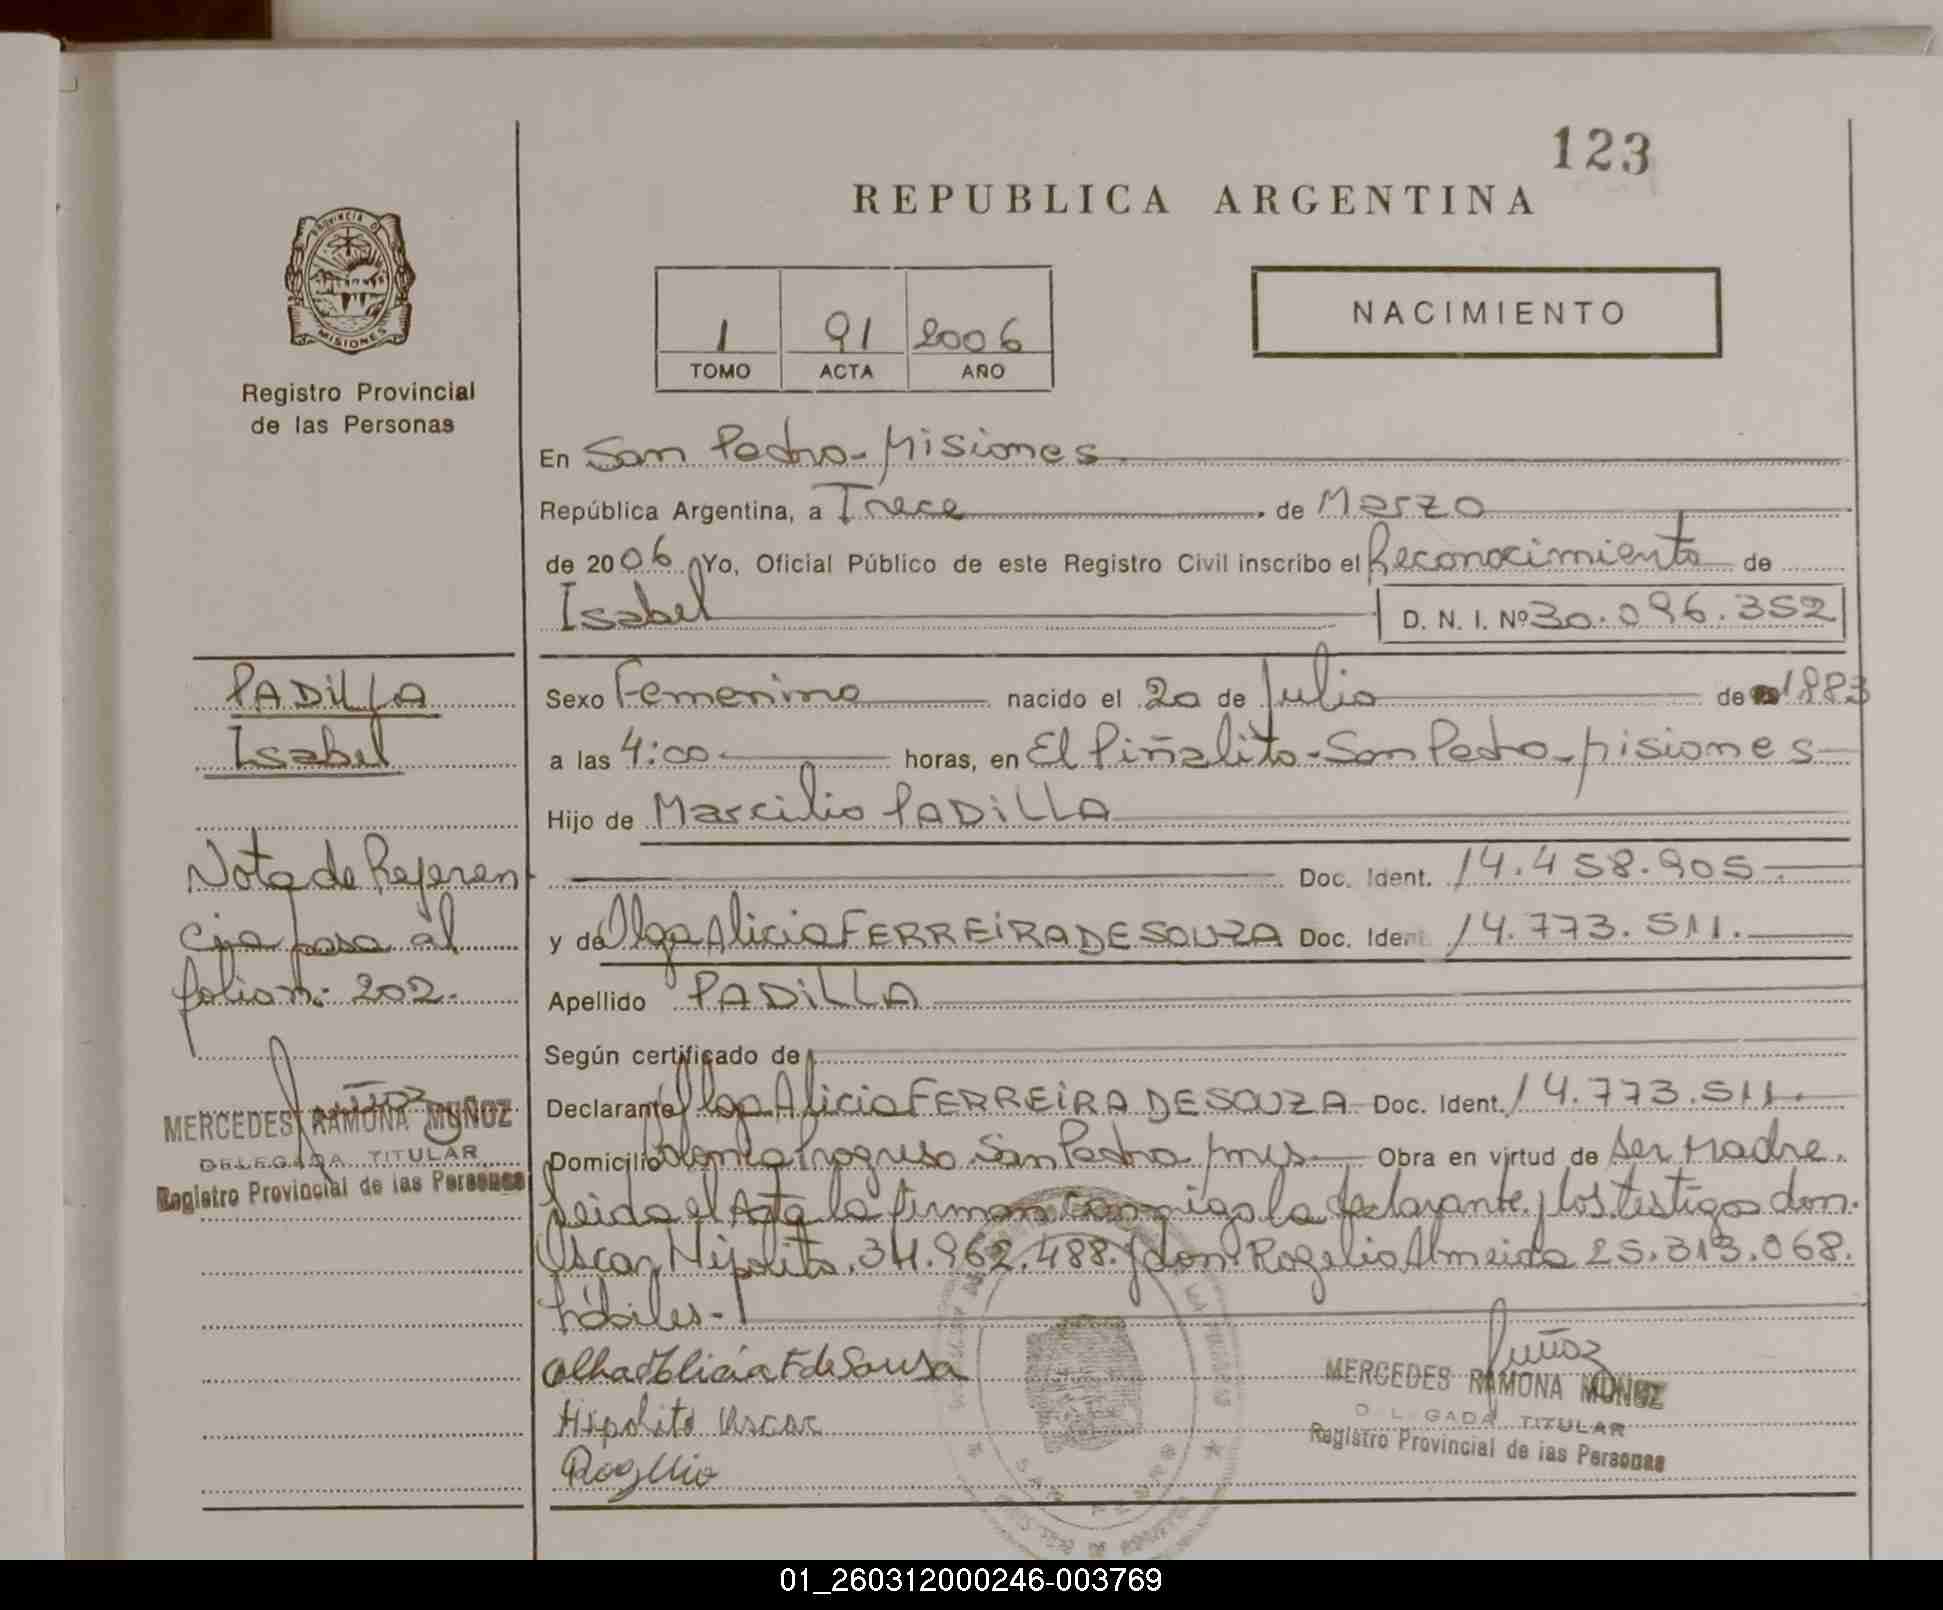 123
REPUBLICA ARGENTINA
PROVINCIA D
MISIONES
Registro Provincial
de las Personas
1 91 2006
TOMO ACTA AÑO
NACIMIENTO
En San Pedro - Misiones
República Argentina, a Trece de Marzo
de 2006 Yo, Oficial Público de este Registro Civil inscribo el Reconocimiento de
Isabel D. N. I. Nº 30.096.352
PADILLA
Isabel
Nota de Referen
cia pasa al
folio n: 202.
Muñoz
MERCEDES RAMONA MUÑOZ
DELEGADA TITULAR
Registro Provincial de las Personas
Sexo Femenino nacido el 20 de Julio de 1983
a las 4:00 horas, en El Piñalito - San Pedro - Misiones
Hijo de Marcilio PADILLA
Doc. Ident. 14.458.905
y de Olga Alicia FERREIRA DE SOUZA Doc. Ident. 14.773.511.
Apellido PADILLA
Según certificado de
Declarante Olga Alicia FERREIRA DE SOUZA Doc. Ident. 14.773.511.
Domicilio Colonia Progreso San Pedro Mns. Obra en virtud de ser Madre.
Leida el Acta la firman conmigo la declarante y los testigos don.
Oscar Hipolito. 34.962.488. y don: Rogelio Almeida 25.313.068.
hábiles.-
Olha Alicia F de Sousa
Hipolito Oscar
Rogelio
Muñoz
MERCEDES RAMONA MUÑOZ
DELEGADA TITULAR
Registro Provincial de las Personas
SAN PEDRO
01_260312000246-003769